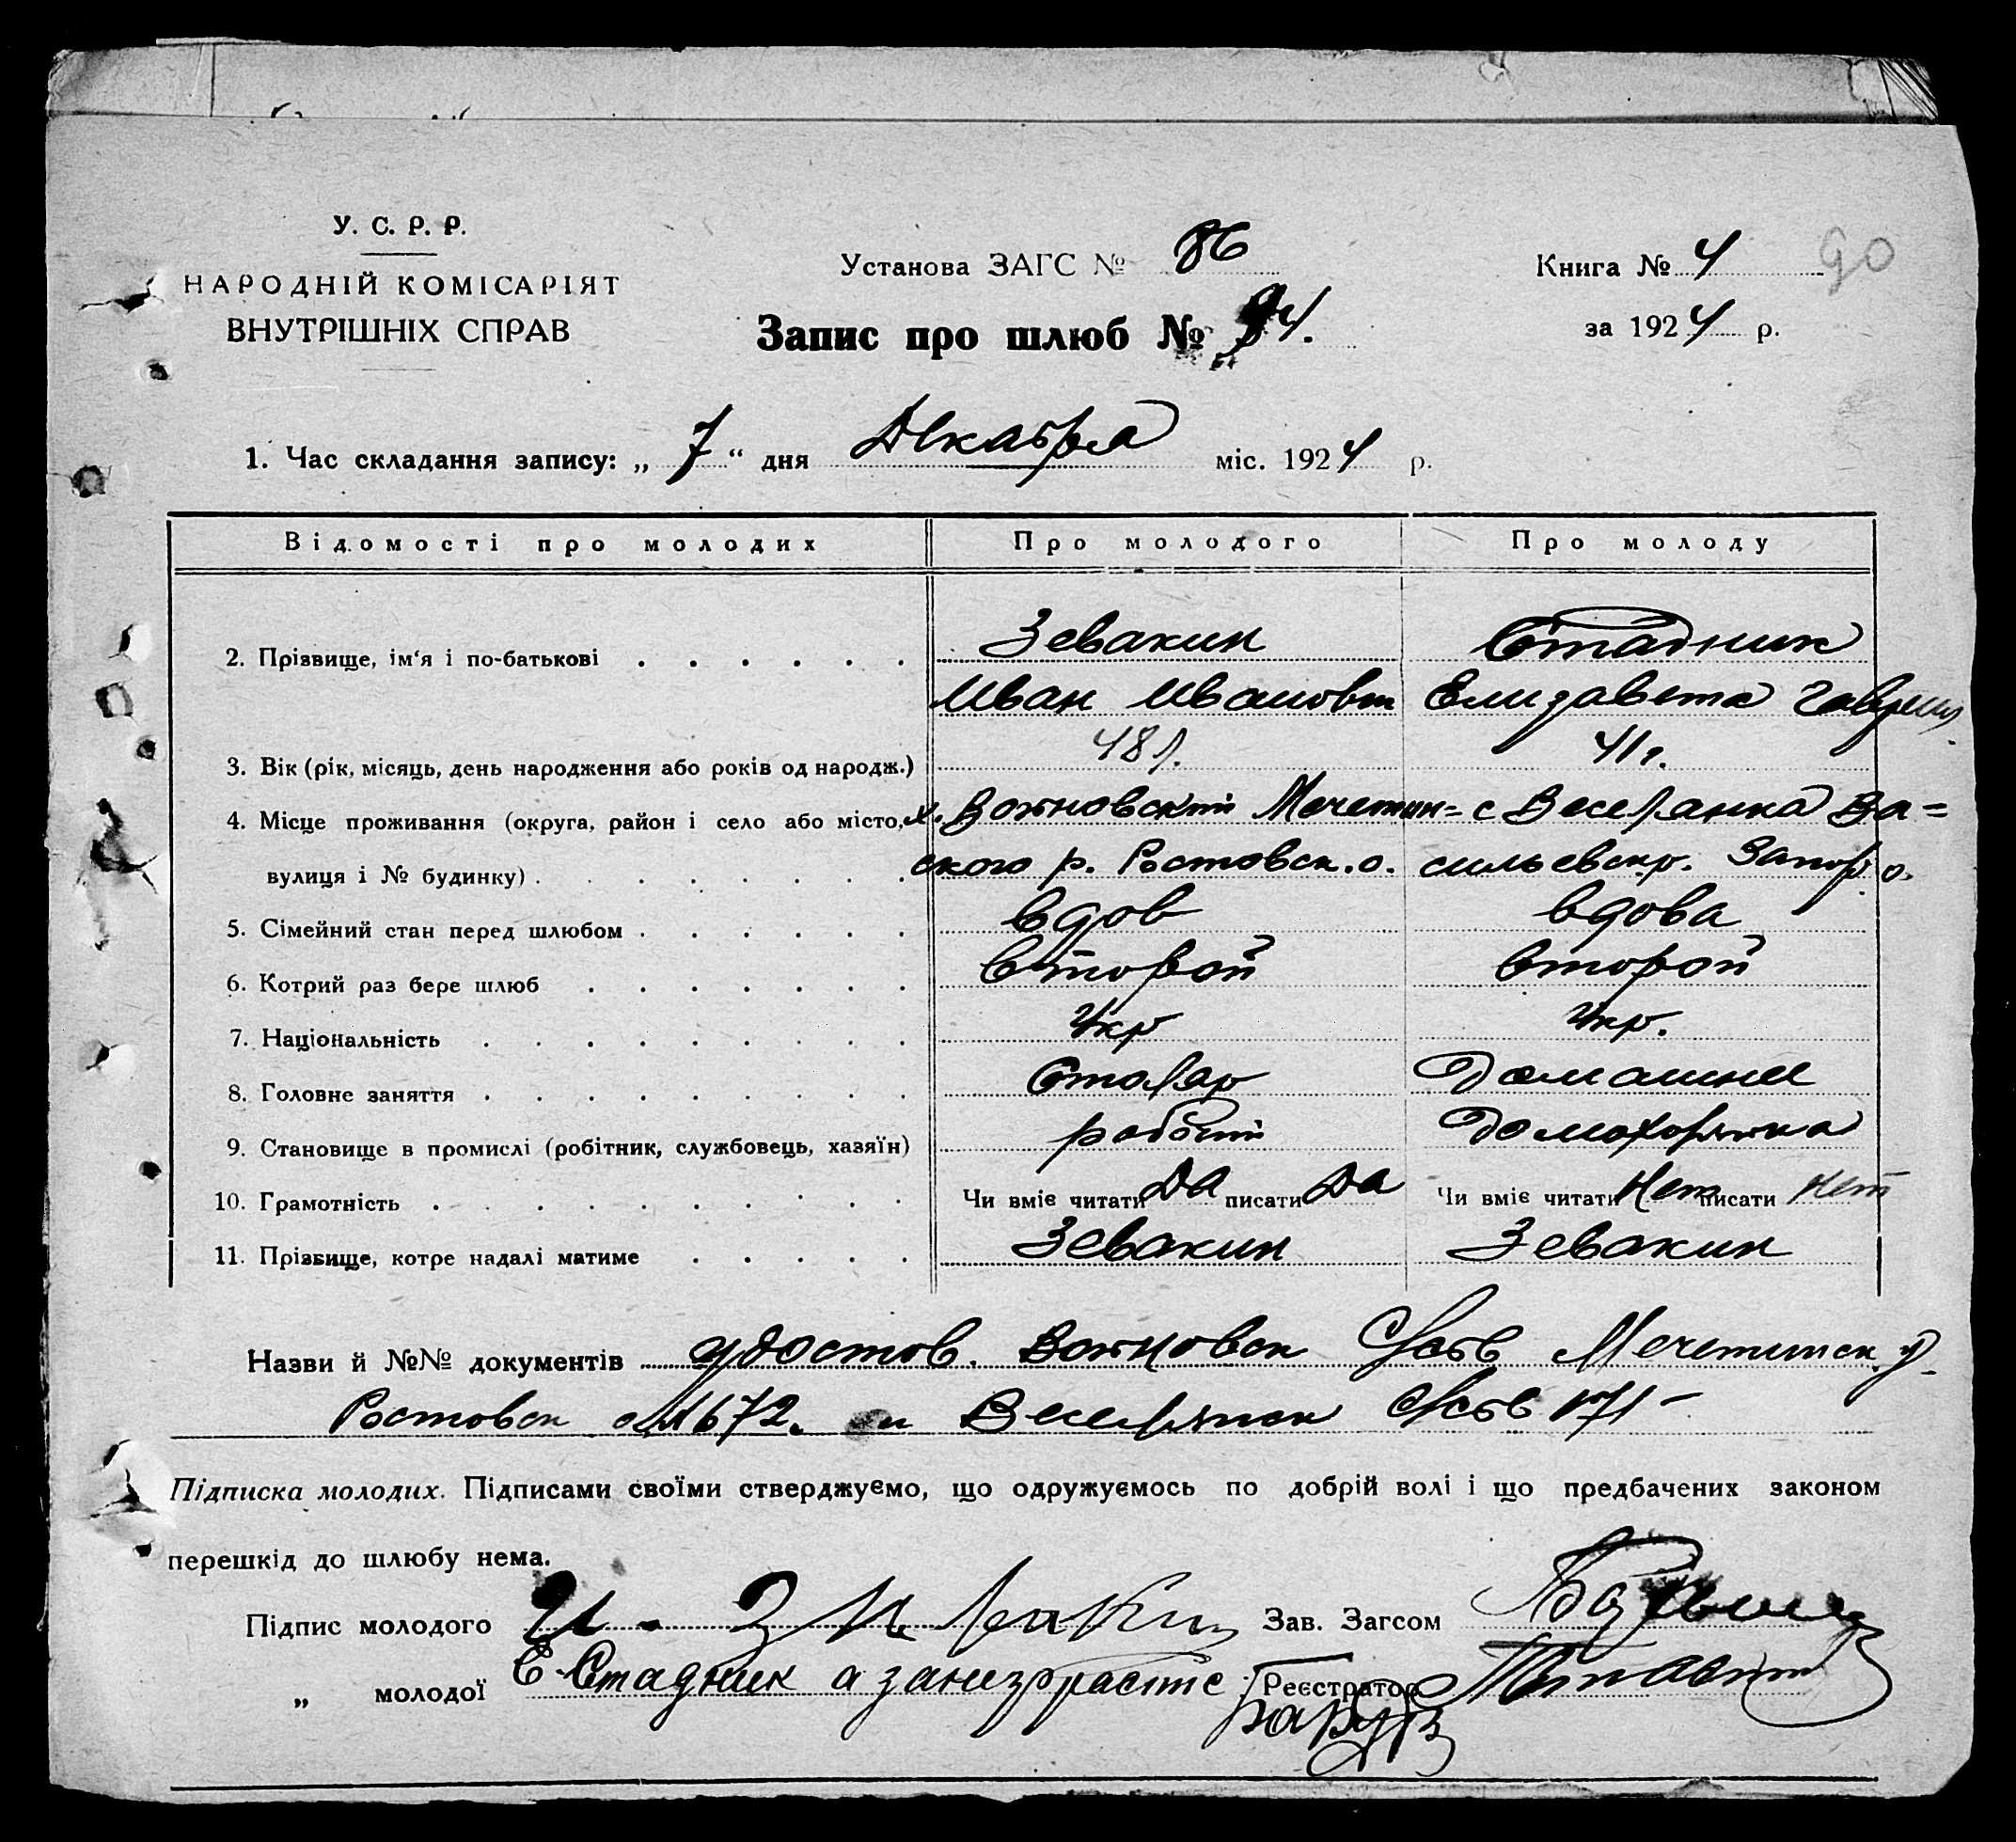 У. С. Р. Р.
НАРОДНІЙ КОМІСАРІЯТ
ВНУТРІШНІХ СПРАВ
Установа ЗАГС № 86
Запис про шлюб № 94.
Книга № 4 90
за 1924 р.
1. Час складання запису: „ 7 “ дня Декабря міс. 1924 р.
Відомості про молодих Про молодого Про молоду
2. Прізвище, ім'я і по-батькові Зевакин Стадник
Иван Иванович Елизавета Гаврил
3. Вік (рік, місяць, день народження або років од народж.) 48 л. 41 г.
4. Місце проживання (округа, район і село або місто, х. Мечетин= с Веселянка Ва=
вулиця і № будинку) ского р. Ростовск. о. сильевск.р. Запор. о.
5. Сімейний стан перед шлюбом вдов вдова
6. Котрий раз бере шлюб второй второй
7. Національність Укр Укр.
8. Головне заняття Столяр Домашнее
9. Становище в промислі (робітник, службовець, хазяїн) Домохозяйка
10. Грамотність Чи вміє читати Да писати Да Чи вміє читати Нет писати Нет
11. Прізвище, котре надалі матиме Зевакин Зевакин
Назви й №№ документів удостов. Мечетинск. р.
Ростовск 672. и Веселянск 171
Підписка молодих. Підписами своїми стверджуємо, що одружуємось по добрій волі і що предбачених законом
перешкід до шлюбу нема.
Підпис молодого И. Зав. Загсом
„ молодої Е. Стадник а за Реєстратор